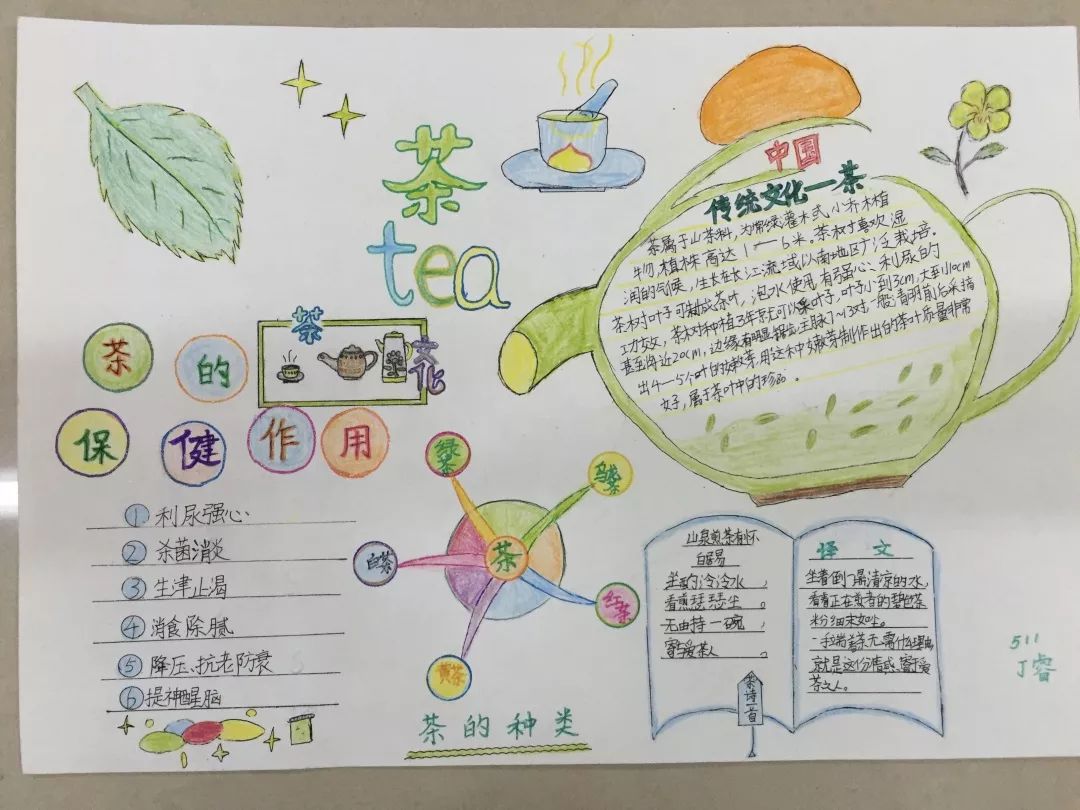 茶
tea
茶
文化
茶的
保健作用
① 利尿强心
② 杀菌消炎
③ 生津止渴
④ 消食除腻
⑤ 降压、抗老防衰
⑥ 提神醒脑
绿茶
乌龙茶
白茶
茶
红茶
黄茶
茶的种类
中国
传统文化一茶
茶属于山茶科,为常绿灌木或小乔木植
物,植株高达1一6米。茶树喜欢湿
润的气候,生长在长江流域以南地区广泛栽培。
茶树叶子可制成茶叶,泡水使用有强心、利尿的
功效。茶树种植3年就可以采叶子,叶子小到3cm,大到10cm
甚至将近20cm,边缘有明显锯齿,主脉7~13对。一般清明前后采摘
出4一5个叶的嫩芽,用这种嫩芽制作出的茶叶质量非常
好,属于茶叶中的珍品。
山泉煎茶有怀
白居易
坐酌泠泠水,
看煎瑟瑟尘。
无由持一碗,
寄与爱茶人。
茶诗一首
译 文
坐着倒一鼎清凉的水,
看着正在煎煮的碧色茶
粉细末如尘。
一手端着茶无需什么理由
就是这份情感寄于爱
茶之人。
511
丁睿